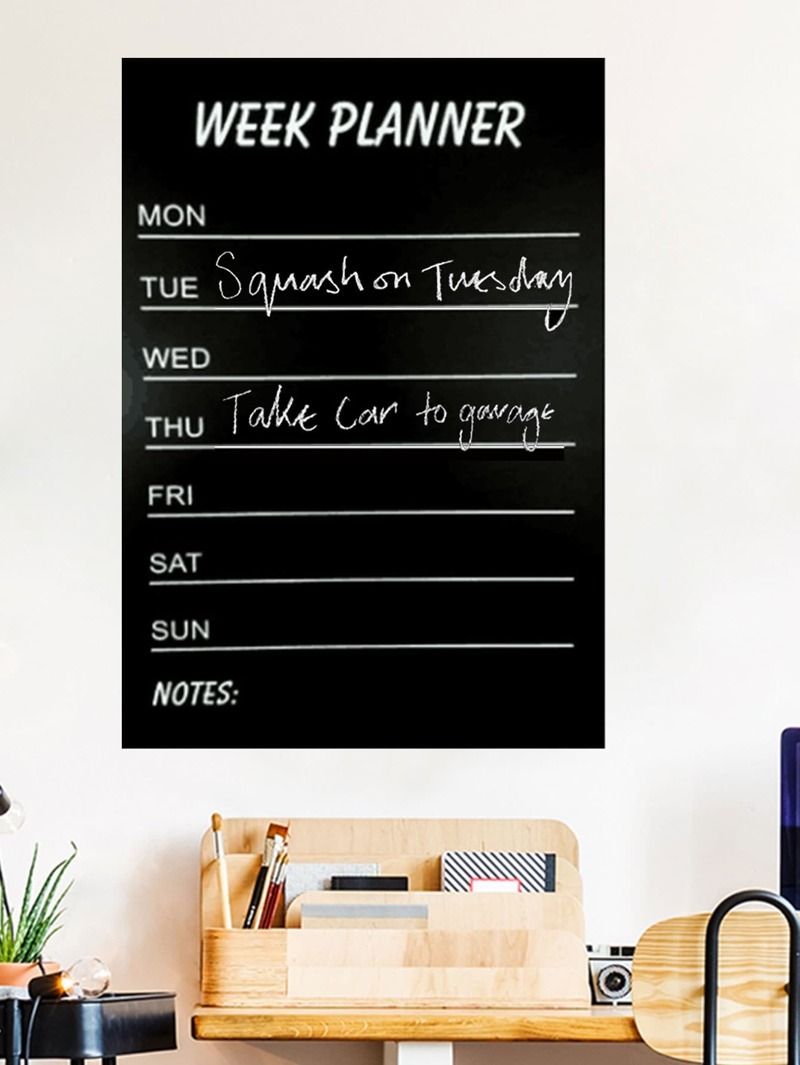 WEEK PLANNER
MON
TUE Squash on Tuesday
WED
THU Take Car to garage
FRI
SAT
SUN
NOTES: